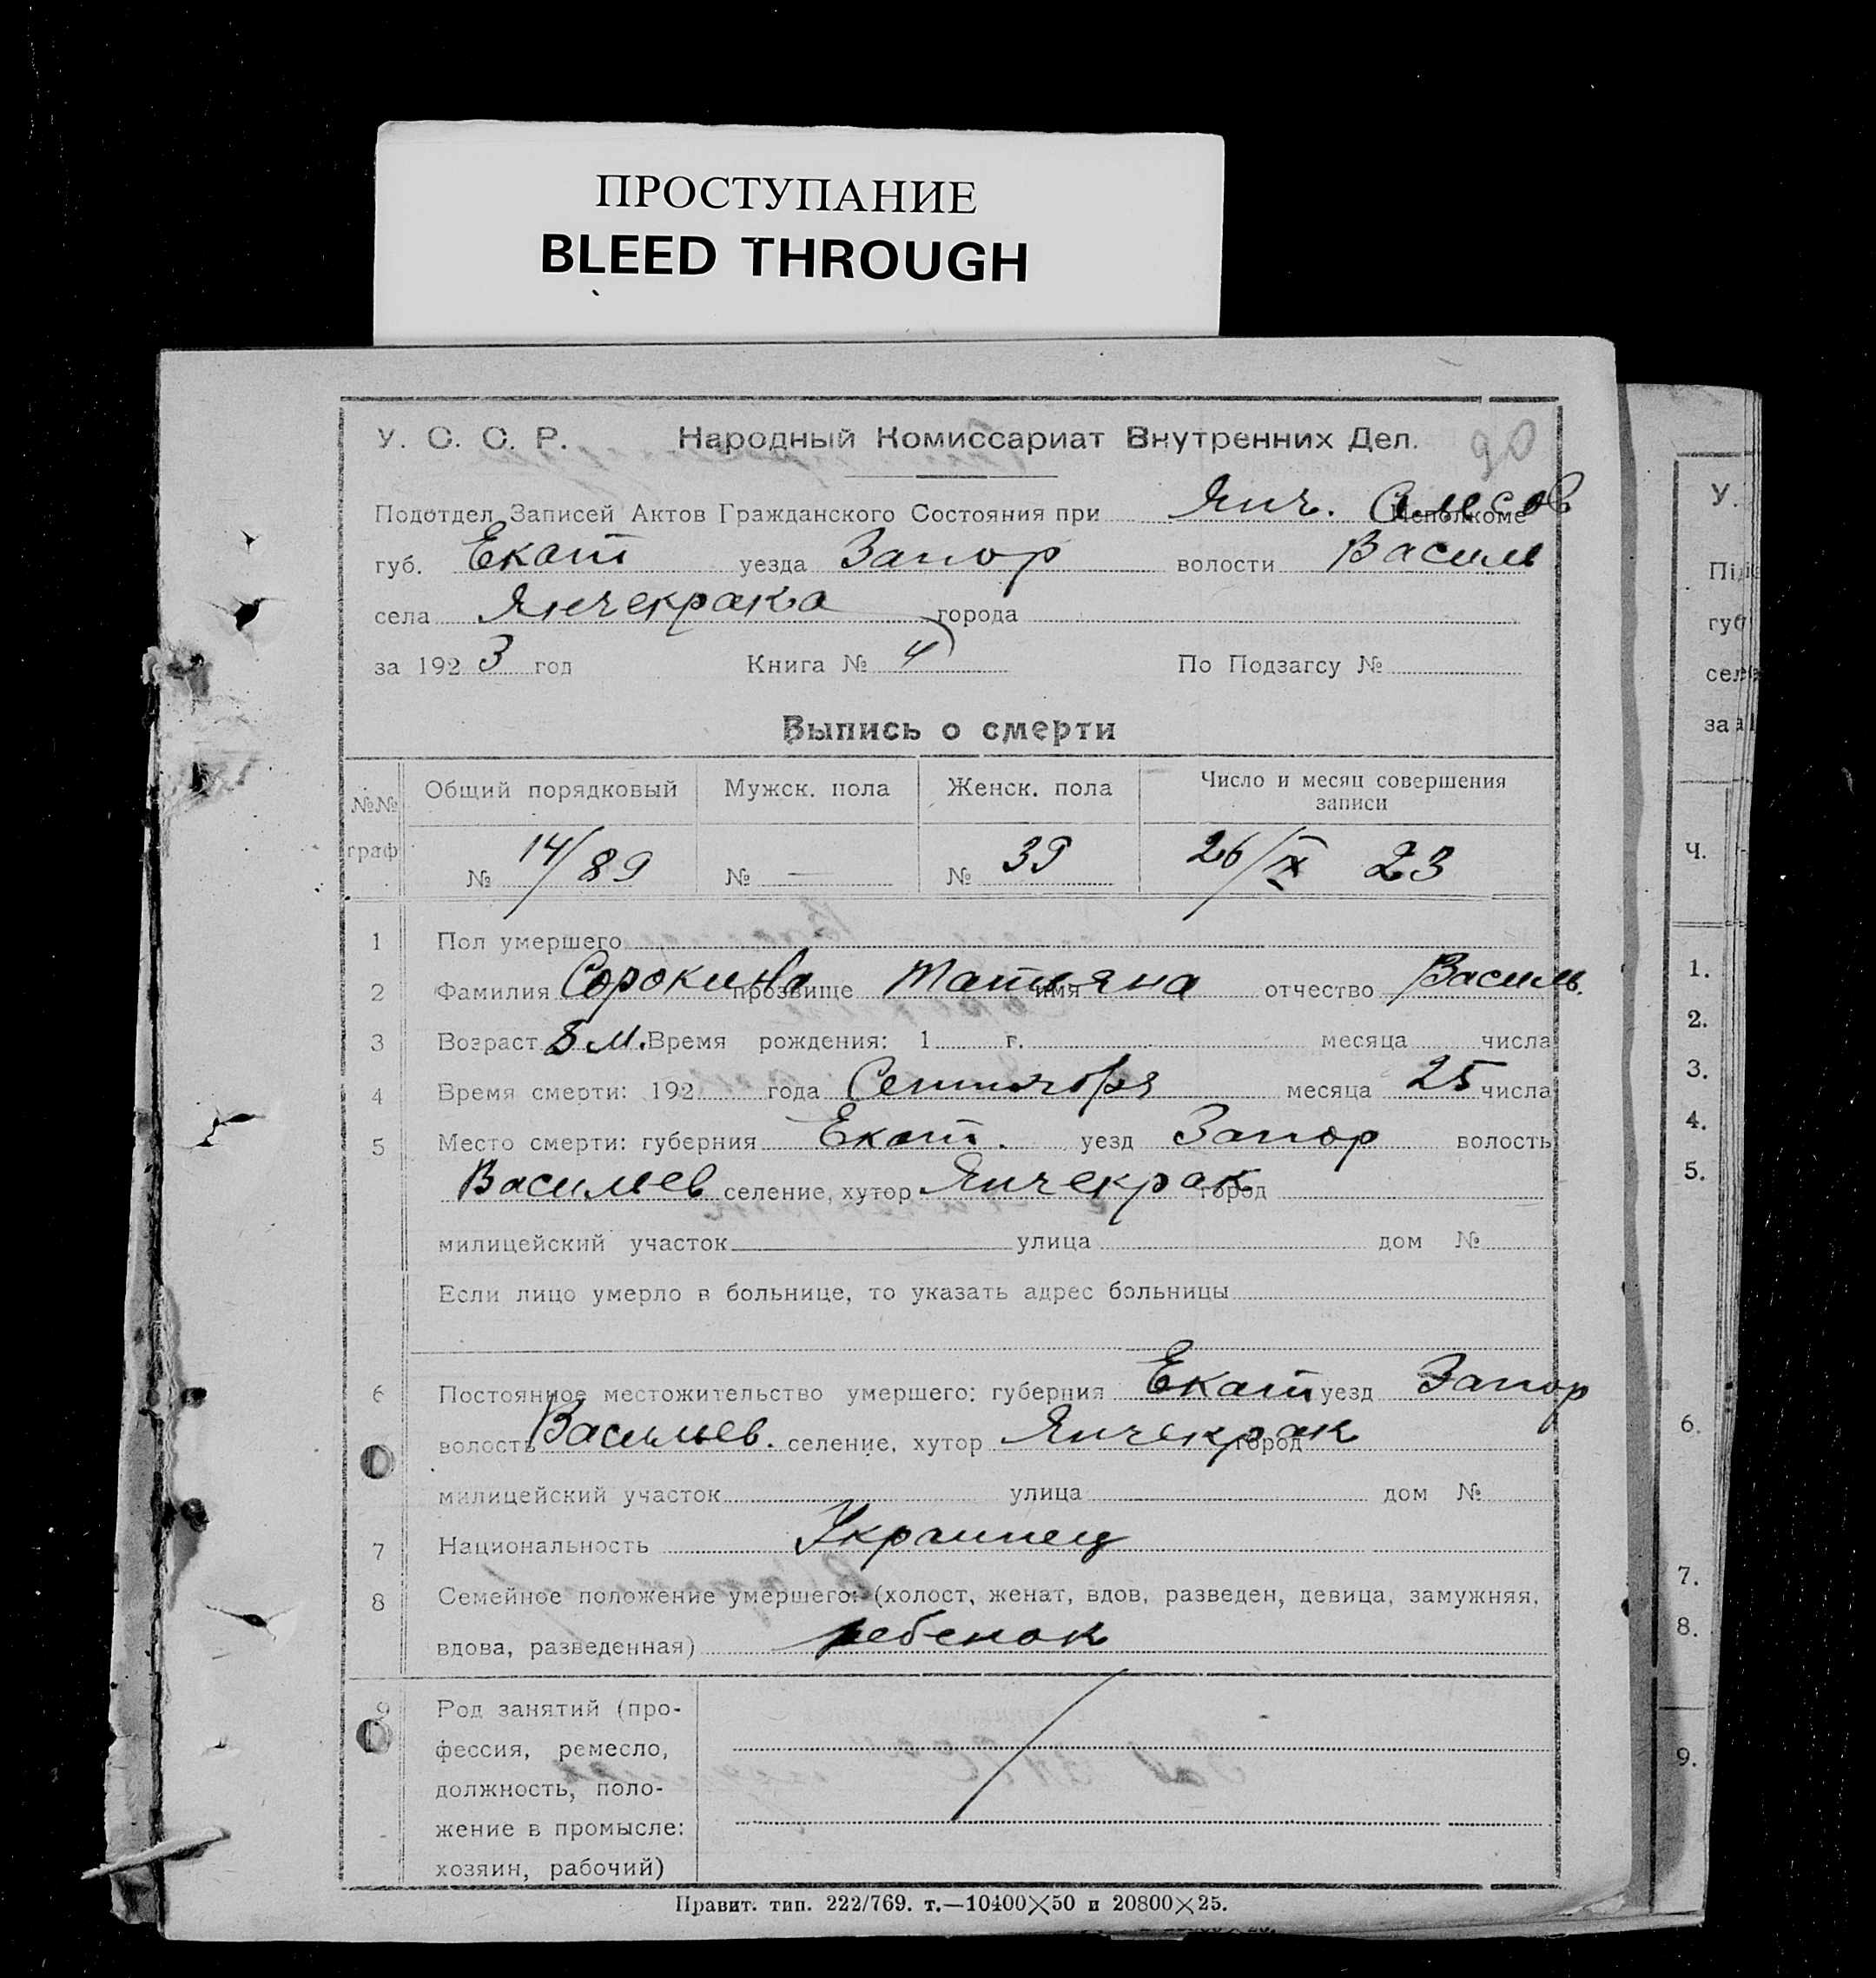 ПРОСТУПАНИЕ
BLEED THROUGH
90
У. С. С. Р. Народный Комиссариат Внутренних Дел.
Подотдел Записей Актов Гражданского Состояния при Янч. Исполкоме
губ. Екат уезда Запор волости Василь
села Янчекрака города
за 1923 год Книга № 4 По Подзагсу №
Выпись о смерти
№№ граф Общий порядковый Мужск. пола Женск. пола Число и месяц совершения записи
№ 14/89 № — № 39 26/IX 23
1 Пол умершего
2 Фамилия Сорокина прозвище Татьяна имя отчество Василь.
3 Возраст 8 м. Время рождения: 1 г. месяца числа
4 Время смерти: 192 года Сентября месяца 25 числа
5 Место смерти: губерния Екат. уезд Запор волость
Васильев селение, хутор Янчекрак город
милицейский участок улица дом №
Если лицо умерло в больнице, то указать адрес больницы
6 Постоянное местожительство умершего: губерния Екат уезд Запор
волость Васильев. селение, хутор Янчекрак город
милицейский участок улица дом №
7 Национальность Украинец
8 Семейное положение умершего: (холост, женат, вдов, разведен, девица, замужняя,
вдова, разведенная) ребенок
9 Род занятий (про-
фессия, ремесло,
должность, поло-
жение в промысле:
хозяин, рабочий)
Правит. тип. 222/769. т.—10400×50 и 20800×25.
У.
губ
за
Ч.
1.
2.
3.
4.
5.
6.
7.
8.
9.